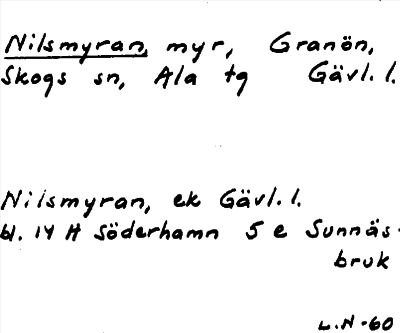 Nilsmyran, myr, Granön,
Skogs sn, Ala tg Gävl. l.
Nilsmyran, ek Gävl. l.
bl. 14 H Söderhamn 5 e Sunnäs-
bruk
L.N-60